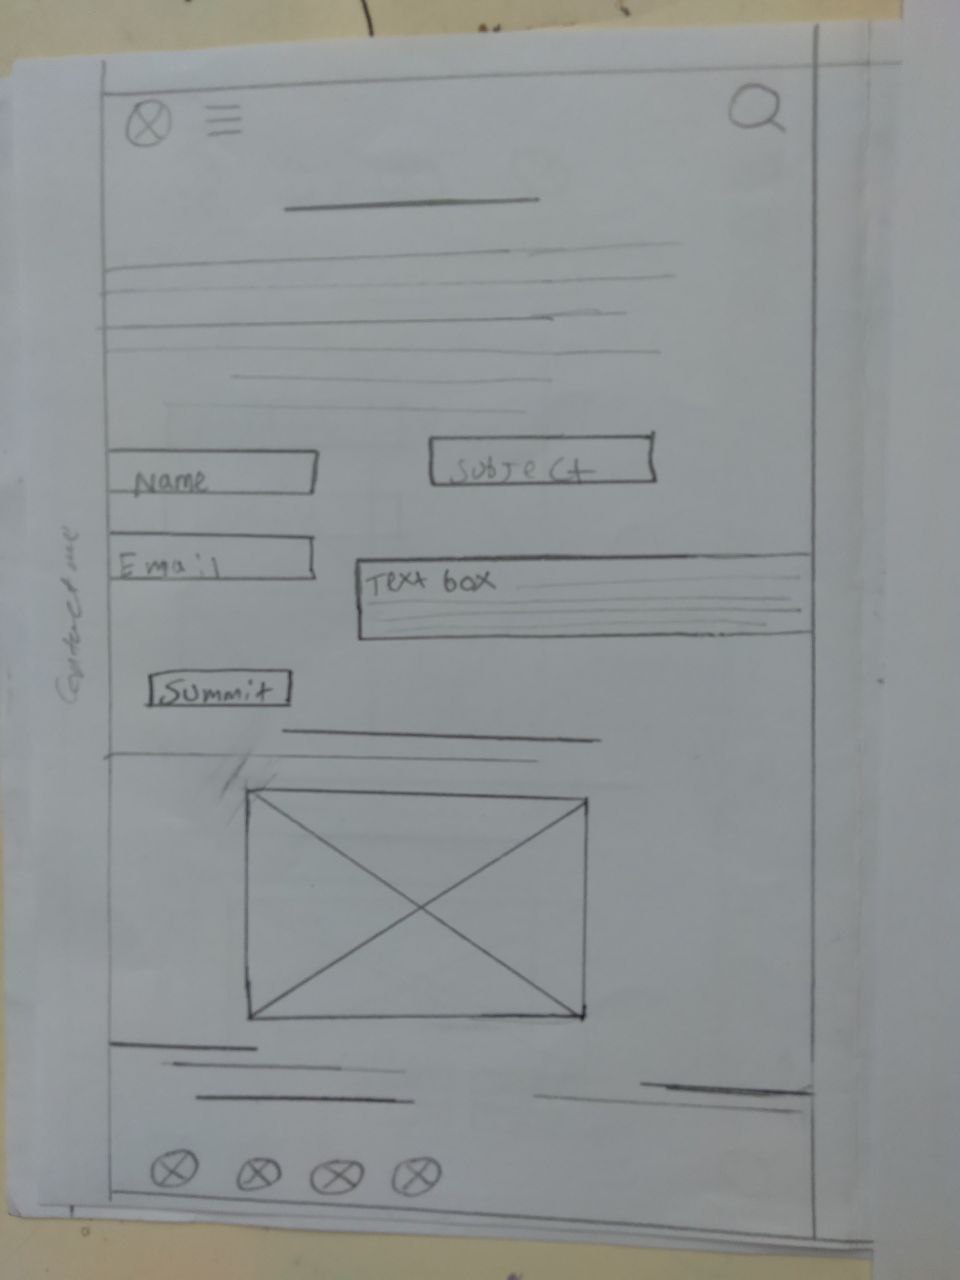 Contact me
Name
Subject
Email
Text box
Summit